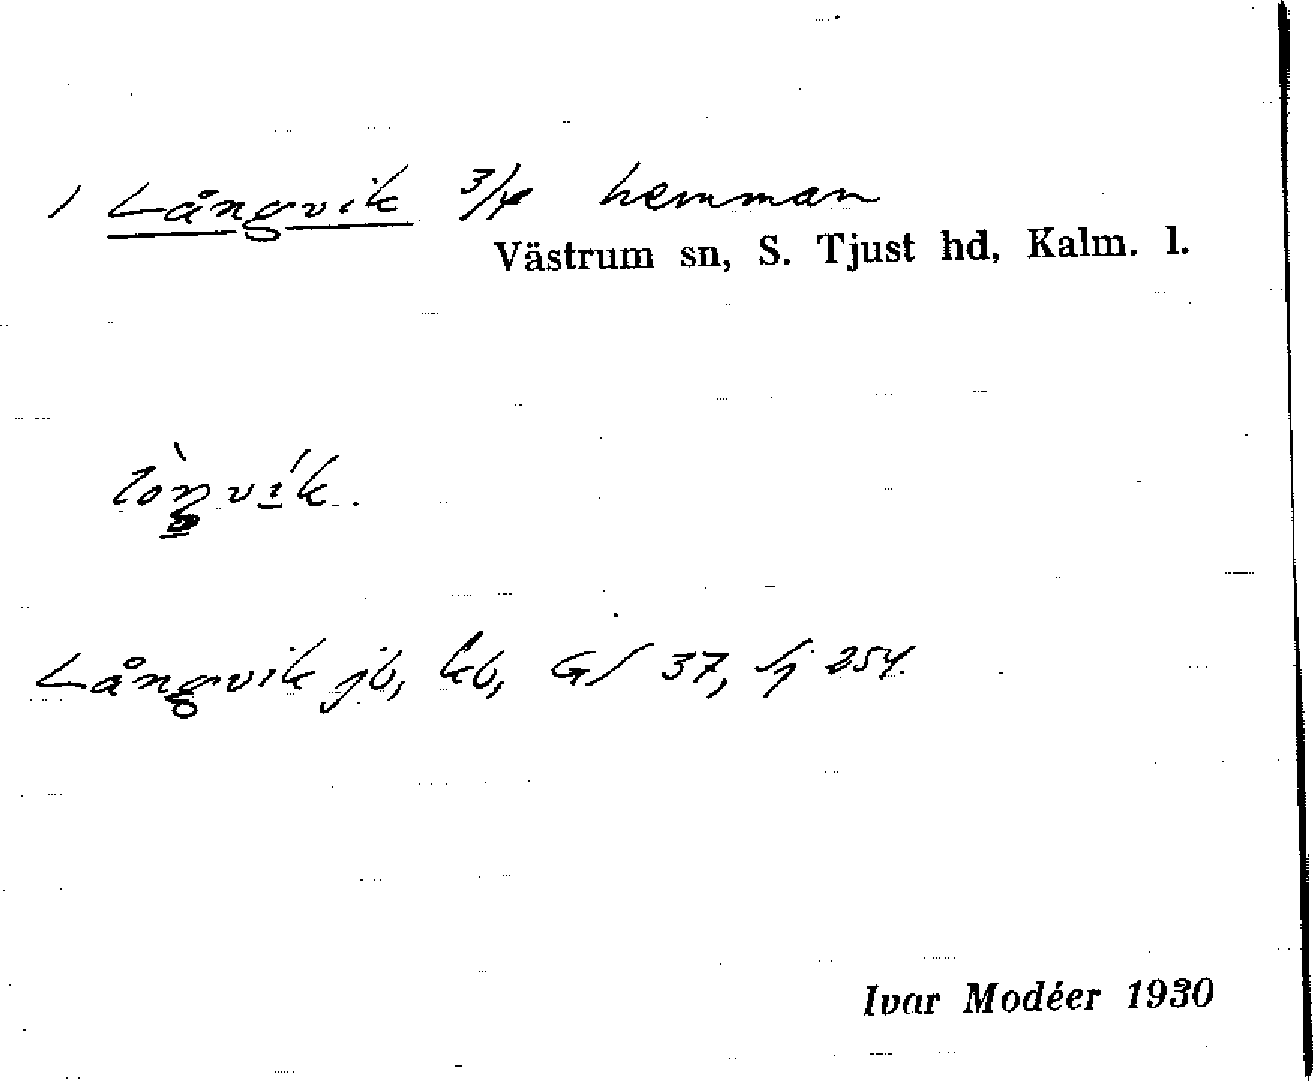 1 Långvik 3/4 hemman
Västrum sn, S. Tjust hd, Kalm. l.
Långvik jb, kb, GS 37, Sj 254.
Ivar Modéer 1930